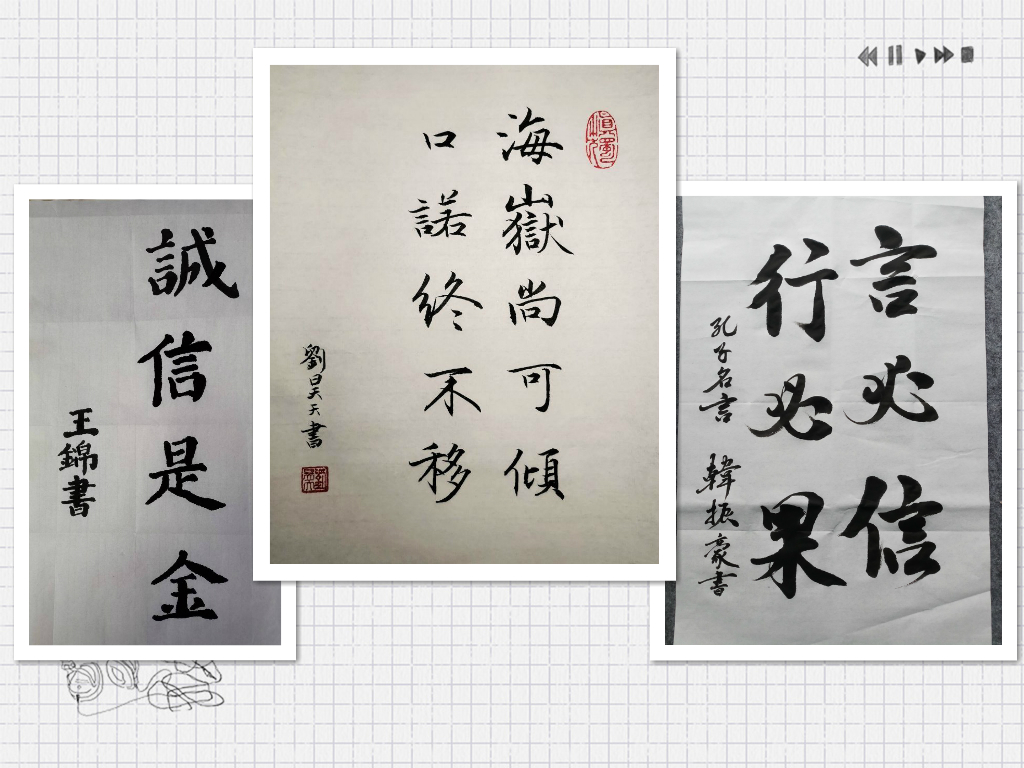 誠信是金
王錦書
海嶽尚可傾
口諾終不移
劉昊天書
言必信
行必果
孔子名言 韓振豪書